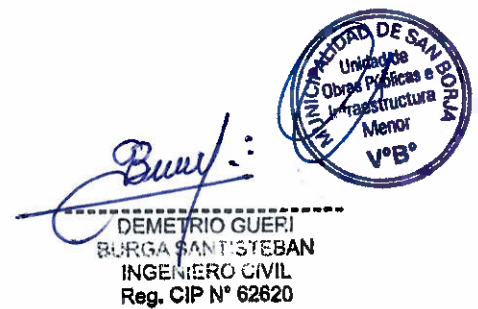 MUNICIPALIDAD DE SAN BORJA
Unidad de
Obras Públicas e
Infraestructura
Menor
V°B°
DEMETRIO GUERI
BURGA SANTISTEBAN
INGENIERO CIVIL
Reg. CIP N° 62620